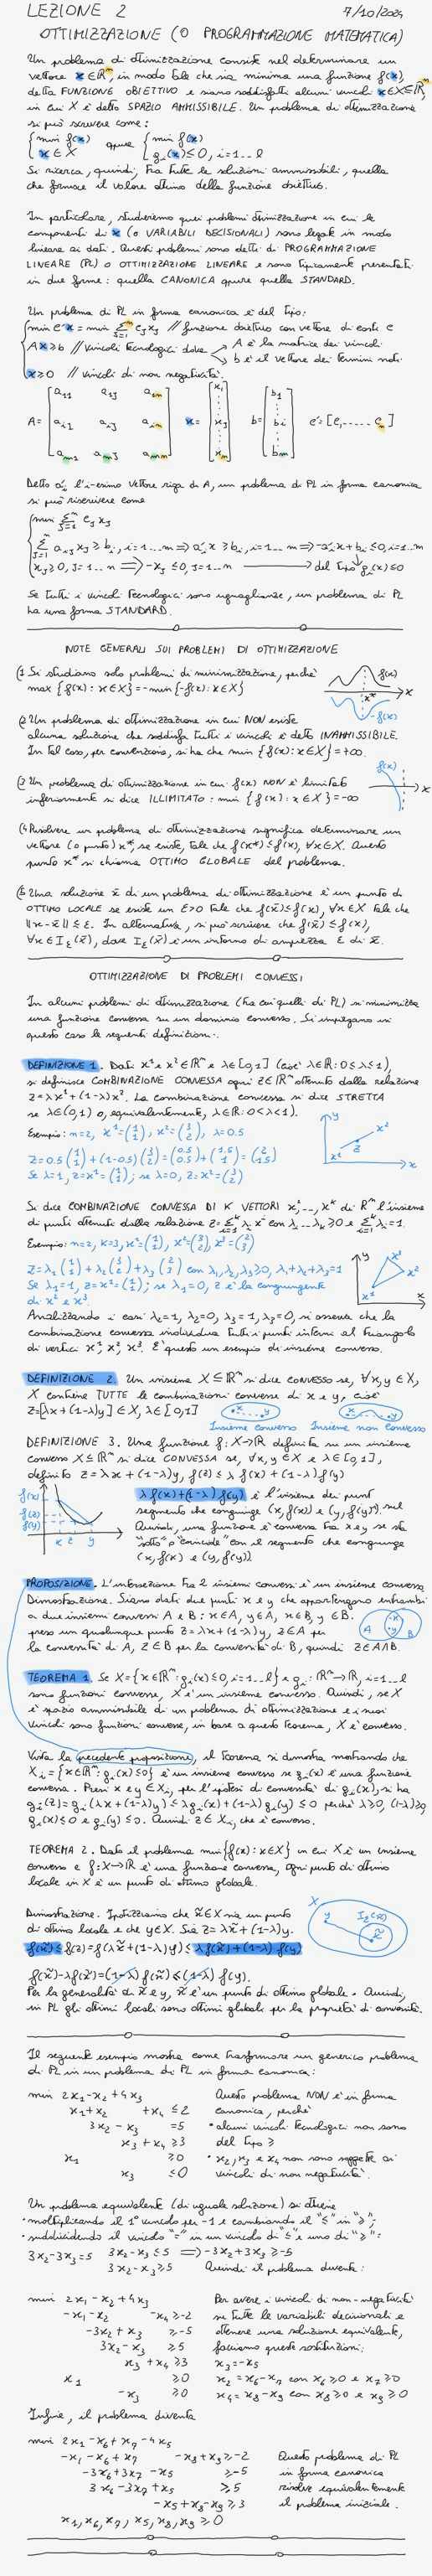 LEZIONE 2 7/10/2024
OTTIMIZZAZIONE (O PROGRAMMAZIONE MATEMATICA)
Un problema di ottimizzazione consiste nel determinare un
vettore x∈ℝⁿ, in modo tale che sia minima una funzione f(x),
detta FUNZIONE OBIETTIVO e siano soddisfatti alcuni vincoli x∈X⊆ℝⁿ,
in cui X è detto SPAZIO AMMISSIBILE. Un problema di ottimizzazione
si può scrivere come:
{min f(x) oppure {min f(x)
x∈X gᵢ(x)≤0, i=1...l
Si ricerca, quindi, fra tutte le soluzioni ammissibili, quella
che fornisce il valore ottimo della funzione obiettivo.
In particolare, studieremo quei problemi d'ottimizzazione in cui le
componenti di x (o VARIABILI DECISIONALI) sono legate in modo
lineare ai dati. Questi problemi sono detti di PROGRAMMAZIONE
LINEARE (PL) O OTTIMIZZAZIONE LINEARE e sono tipicamente presentati
in due forme: quella CANONICA oppure quella STANDARD.
Un problema di PL in forma canonica è del tipo:
{min c'x = min Σⱼ₌₁ⁿ cⱼxⱼ // funzione obiettivo con vettore di costi c
Ax≥b // vincoli tecnologici dove A è la matrice dei vincoli
b è il vettore dei termini noti
x≥0 // vincoli di non negatività
A= [a₁₁ a₁ⱼ a₁ₙ x= [x₁ b= [b₁ c'=[c₁,.....cₙ]
aᵢ₁ aᵢⱼ aᵢₙ xⱼ bᵢ
aₘ₁ aₘⱼ aₘₙ] xₙ] bₘ]
Detto a'ᵢ l'i-esimo vettore riga di A, un problema di PL in forma canonica
si può riscrivere come
{min Σⱼ₌₁ⁿ cⱼxⱼ
Σⱼ₌₁ⁿ aᵢⱼxⱼ≥bᵢ, i=1...m ⟹ a'ᵢx≥bᵢ, i=1...m ⟹ -a'ᵢx+bᵢ≤0, i=1...m
xⱼ≥0, j=1...n ⟹ -xⱼ≤0, j=1...n → del tipo gᵢ(x)≤0
Se tutti i vincoli tecnologici sono uguaglianze, un problema di PL
ha una forma STANDARD.
NOTE GENERALI SUI PROBLEMI DI OTTIMIZZAZIONE
(1 Si studiano solo problemi di minimizzazione, perché
max {f(x): x∈X}=-min{-f(x): x∈X}
f(x)
x*
x
-f(x)
(2 Un problema di ottimizzazione in cui NON esiste
alcuna soluzione che soddisfa tutti i vincoli è detto INAMMISSIBILE.
In tal caso, per convenzione, si ha che min {f(x): x∈X}=+∞.
(3 Un problema di ottimizzazione in cui f(x) NON è limitata
inferiormente si dice ILLIMITATO: min {f(x): x∈X}=-∞
f(x)
x
(4 Risolvere un problema di ottimizzazione significa determinare un
vettore (o punto) x*, se esiste, tale che f(x*)≤f(x), ∀x∈X. Questo
punto x* si chiama OTTIMO GLOBALE del problema.
(5 Una soluzione x̄ di un problema di ottimizzazione è un punto di
OTTIMO LOCALE se esiste un ε>0 tale che f(x̄)≤f(x), ∀x∈X tale che
||x-x̄||≤ε. In alternativa, si può scrivere che f(x̄)≤f(x),
∀x∈I_ε(x̄), dove I_ε(x̄) è un intorno di ampiezza ε di x̄.
OTTIMIZZAZIONE DI PROBLEMI CONVESSI
In alcuni problemi di ottimizzazione (tra cui quelli di PL) si minimizza
una funzione convessa su un dominio convesso. Si impiegano in
questo caso le seguenti definizioni:
DEFINIZIONE 1. Dati x¹ e x²∈ℝⁿ e λ∈[0,1] (cioè λ∈ℝ: 0≤λ≤1),
si definisce COMBINAZIONE CONVESSA ogni z∈ℝⁿ ottenuto dalla relazione
z=λx¹+(1-λ)x². La combinazione convessa si dice STRETTA
se λ∈(0,1) o, equivalentemente, λ∈ℝ: 0<λ<1).
Esempio: n=2, x¹=(1 1), x²=(3 2), λ=0.5
z=0.5(1 1)+(1-0.5)(3 2)=(0.5 0.5)+(1.5 1)=(2 1.5)
Se λ=1, z=x¹=(1 1); se λ=0, z=x²=(3 2)
y
x²
z
x¹
x
Si dice COMBINAZIONE CONVESSA DI K VETTORI x¹...,xᵏ di ℝⁿ l'insieme
di punti ottenuti dalla relazione z=Σᵢ₌₁ᵏ λᵢxⁱ con λ₁...λₖ≥0 e Σᵢ₌₁ᵏ λᵢ=1.
Esempio: n=2, k=3, x¹=(1 1), x²=(3 2), x³=(2 3)
z=λ₁(1 1)+λ₂(3 2)+λ₃(2 3) con λ₁,λ₂,λ₃≥0, λ₁+λ₂+λ₃=1
Se λ₁=1, z=x¹=(1 1); se λ₁=0, z è la congiungente
di x² e x³.
y
x³
x²
x¹
x
Analizzando i casi λ₂=1, λ₂=0, λ₃=1, λ₃=0, si osserva che la
combinazione convessa individua tutti i punti interni al triangolo
di vertici x¹, x², x³. È questo un esempio di insieme convesso.
DEFINIZIONE 2. Un insieme X⊆ℝⁿ si dice CONVESSO se, ∀x,y∈X,
X contiene TUTTE le combinazioni convesse di x e y, cioè
z=[λx+(1-λ)y]∈X, λ∈[0,1]
x y
x y
Insieme convesso Insieme non convesso
DEFINIZIONE 3. Una funzione f: X→ℝ definita su un insieme
convesso X⊆ℝⁿ si dice CONVESSA se, ∀x,y∈X e λ∈[0,1],
definito z=λx+(1-λ)y, f(z)≤λf(x)+(1-λ)f(y)
f(x)
f(z)
f(y)
x z y
λf(x)+(1-λ)f(y) è l'insieme dei punti
segmento che congiunge (x,f(x)) e (y,f(y)). sul
Quindi, una funzione è convessa fra x e y se sta
"sotto" o "coincide" con il segmento che congiunge
(x,f(x)) e (y,f(y)).
PROPOSIZIONE. L'intersezione fra 2 insiemi convessi è un insieme convesso
Dimostrazione. Siano dati due punti x e y che appartengono entrambi
a due insiemi convessi A e B: x∈A, y∈A, x∈B, y∈B.
preso un qualunque punto z=λx+(1-λ)y, z∈A per
la convessità di A, z∈B per la convessità di B, quindi z∈A∩B.
A x y B
TEOREMA 1. Se X={x∈ℝⁿ: gᵢ(x)≤0, i=1...l} e gᵢ: ℝⁿ→ℝ, i=1...l
sono funzioni convesse, X è un insieme convesso. Quindi, se X
è spazio ammissibile di un problema di ottimizzazione e i suoi
vincoli sono funzioni convesse, in base a questo teorema, X è convesso.
Vista la precedente proposizione, il teorema si dimostra mostrando che
Xᵢ={x∈ℝⁿ: gᵢ(x)≤0} è un insieme convesso se gᵢ(x) è una funzione
convessa. Presi x e y∈Xᵢ, per l'ipotesi di convessità di gᵢ(x), si ha
gᵢ(z)=gᵢ(λx+(1-λ)y)≤λgᵢ(x)+(1-λ)gᵢ(y)≤0 perché λ≥0, (1-λ)≥0,
gᵢ(x)≤0 e gᵢ(y)≤0. Quindi z∈Xᵢ, che è convesso.
TEOREMA 2. Dato il problema min{f(x): x∈X} in cui X è un insieme
convesso e f: X→ℝ è una funzione convessa, ogni punto di ottimo
locale in X è un punto di ottimo globale.
Dimostrazione. Ipotizziamo che x̃∈X sia un punto
di ottimo locale e che y∈X. Sia z=λx̃+(1-λ)y.
f(x̃)≤f(z)=f(λx̃+(1-λ)y)≤λf(x̃)+(1-λ)f(y)
X
y
I_ε(x̃)
x̃
f(x̃)-λf(x̃)=(1-λ)f(x̃)≤(1-λ)f(y).
Per la generalità di x̃ e y, x̃ è un punto di ottimo globale. Quindi,
in PL gli ottimi locali sono ottimi globali per la proprietà di convessità.
Il seguente esempio mostra come trasformare un generico problema
di PL in un problema di PL in forma canonica:
min 2x₁-x₂+4x₃
x₁+x₂ +x₄≤2
3x₂-x₃ =5
x₃+x₄≥3
x₁ ≥0
x₃ ≤0
Questo problema NON è in forma
canonica, perché
• alcuni vincoli tecnologici non sono
del tipo ≥
• x₂, x₃ e x₄ non sono soggette ai
vincoli di non negatività.
Un problema equivalente (di uguale soluzione) si ottiene
• moltiplicando il 1° vincolo per -1 e cambiando il "≤" in "≥";
• suddividendo il vincolo "=" in un vincolo di "≤" e uno di "≥":
3x₂-3x₃=5 3x₂-x₃≤5 ⟹ -3x₂+3x₃≥-5
3x₂-x₃≥5 Quindi il problema diventa:
min 2x₁-x₂+4x₃
-x₁-x₂ -x₄≥-2
-3x₂+x₃ ≥-5
3x₂-x₃ ≥5
x₃+x₄≥3
x₁ ≥0
-x₃ ≥0
Per avere i vincoli di non-negatività
su tutte le variabili decisionali e
ottenere una soluzione equivalente,
facciamo queste sostituzioni:
x₃=-x₅
x₂=x₆-x₇ con x₆≥0 e x₇≥0
x₄=x₈-x₉ con x₈≥0 e x₉≥0
Infine, il problema diventa
min 2x₁-x₆+x₇-4x₅
-x₁-x₆+x₇ -x₈+x₉≥-2
-3x₆+3x₇-x₅ ≥-5
3x₆-3x₇+x₅ ≥5
-x₅+x₈-x₉≥3
x₁,x₆,x₇,x₅,x₈,x₉≥0
Questo problema di PL
in forma canonica
risolve equivalentemente
il problema iniziale.